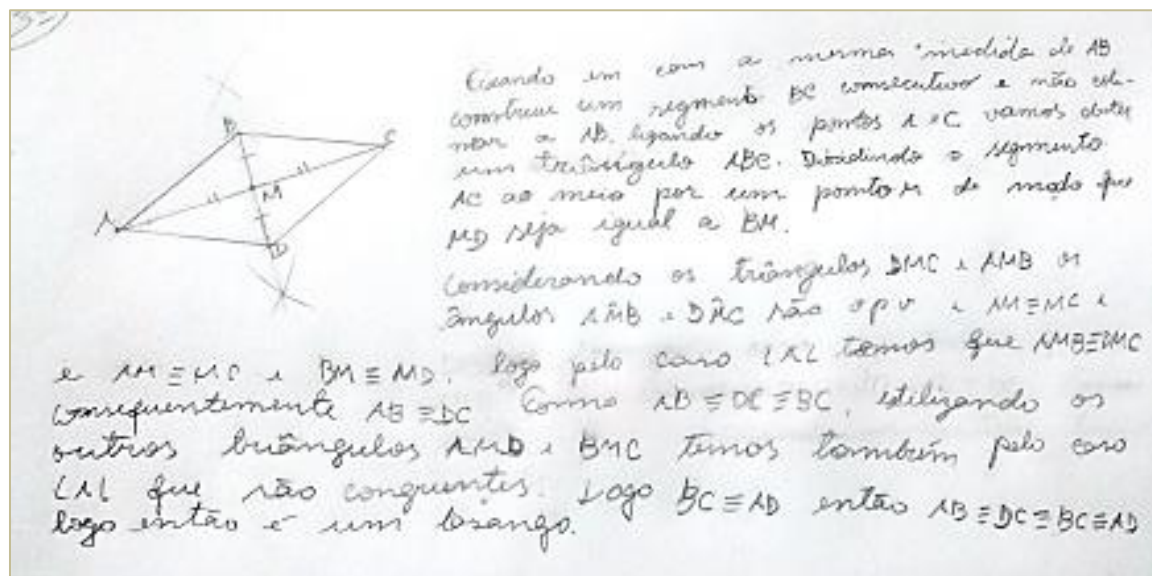 35
B
C
M
A
D
com a mesma medida de AB
construí um segmento BC consecutivo e não coli-
near a AB. ligando os pontos A e C vamos obter
um triângulo ABC. Dividindo o segmento
AC ao meio por um ponto M de modo que
MD seja igual a BM.
Considerando os triângulos DMC e AMB os
ângulos AM̂B e DM̂C são opv e AM≡MC e
e AM≡MC e BM≡MD. logo pelo caso LAL temos que AMB≡DMC
consequentemente AB≡DC Como AB≡DC≡BC, utilizando os
outros triângulos AMD e BMC temos também pelo caso
LAL que são congruentes. Logo BC≡AD então AB≡DC≡BC≡AD
logo então é um losango.